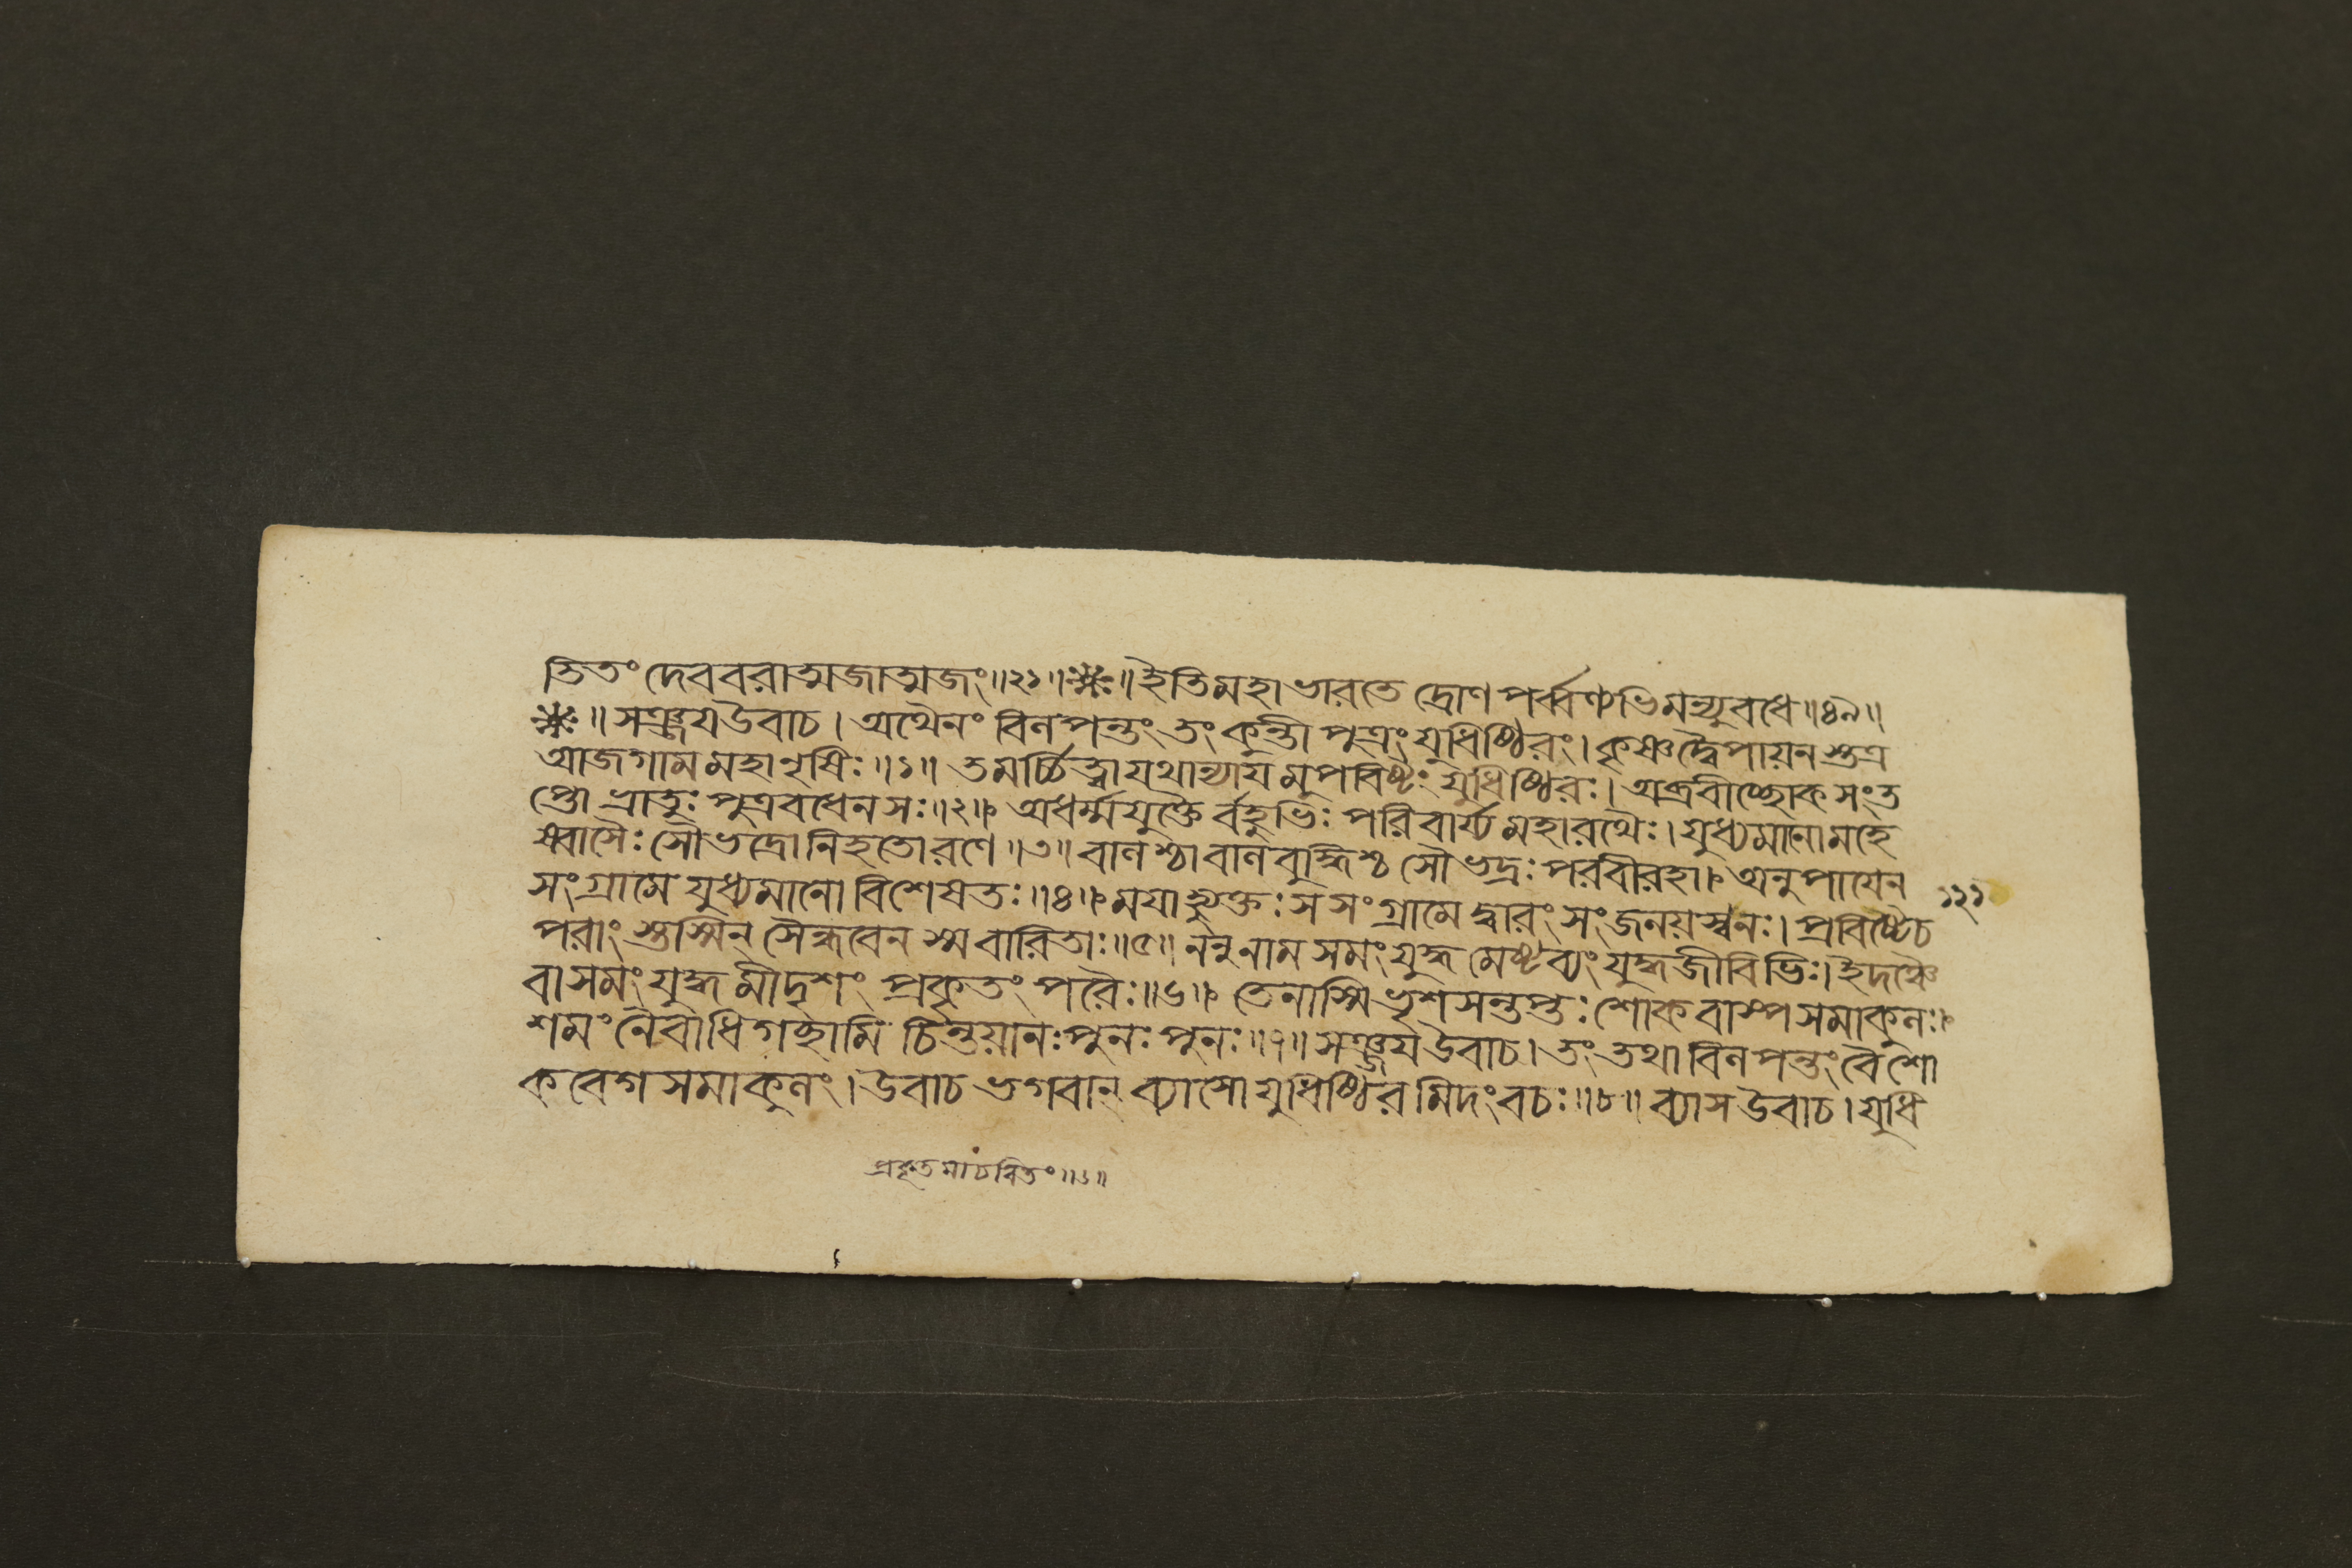 তিতং দেববরাত্মজাত্মজং॥২১॥❋ঃ॥ইতিমহাভারতে দ্রোণপর্ব্বণ্যভিমন্যুবধে॥৪৯॥
❋ঃ॥সঞ্জয়উবাচ।অথৈনং বিলপন্তং তং কুন্তীপুত্রং যুধিষ্ঠিরং।কৃষ্ণদ্বৈপায়নস্তত্র
আজগামমহাঋষিঃ॥১॥ তমর্চ্চিত্বাযথান্যায়মুপবিষ্টং যুধিষ্ঠিরঃ।অব্রবীচ্ছোকসংত
প্তো ভ্রাতুঃ পুত্রবধেনসঃ॥২॥ অধর্ম্মযুক্তৈর্বহুভিঃ পরিবার্য্যমহারথৈঃ।যুধ্যমানোমহে
ষ্বাসৈঃ সৌভদ্রোনিহতোরণে॥৩॥বালশ্চাবালবুদ্ধিশ্চ সৌভদ্রঃ পরবীরহা। অনুপায়েন
সংগ্রামে যুধ্যমানো বিশেষতঃ॥৪॥ময়াহ্যুক্তঃ সসংগ্রামে দ্বারং সংজনয়স্বনঃ।প্রবিষ্টেচ
১২১
পরাংস্তস্মিন্ সৈন্ধবেন স্মবারিতাঃ॥৫॥ননুনামসমং যুদ্ধমেষ্টব্যং যুদ্ধজীবিভিঃ।ইদঞ্চৈ
বাসমং যুদ্ধমীদৃশং প্রকৃতং পরৈঃ॥৬॥ তেনাস্মিভৃশসন্তপ্তঃ শোকবাষ্পসমাকুলঃ।
শমং নৈবাধিগচ্ছামি চিন্তয়ানঃ পুনঃ পুনঃ॥৭॥সঞ্জয়উবাচ।তং তথাবিলপন্তং বৈশো
কবেগসমাকুলং।উবাচ ভগবান্ ব্যাসোযুধিষ্ঠিরমিদং বচঃ॥৮॥ব্যাসউবাচ।যুধি
প্রকৃতমাচরিতং॥৬॥